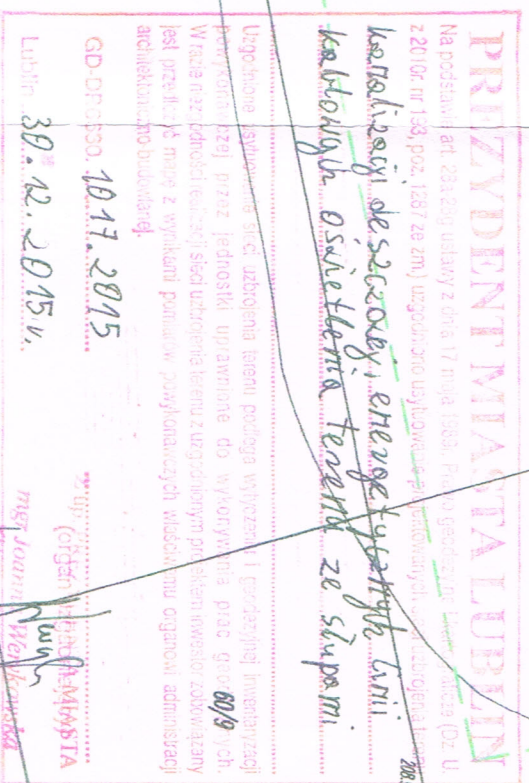 PREZYDENT MIASTA LUBLIN
Na podstawie art. 28 ustawy z dnia 17 maja 1989r. (Dz. U.
z 2010r. nr 193, poz. 1287 ze zm.) uzgodniono usytuowanie
kanalizacji deszczowej i energetycznych linii
kablowych oświetlenia terenu ze słupami
208
Uzgodnione usytuowanie sieci uzbrojenia terenu podlega wytyczeniu i geodezyjnej inwentaryzacji
powykonawczej przez jednostki uprawnione do wykonywania prac
60/9
W razie niezgodności realizacji sieci uzbrojenia terenu z uzgodnionym projektem inwestor zobowiązany
jest przedłożyć mapę z wynikami pomiarów powykonawczych właściwemu organowi administracji
architektoniczno-budowlanej.
1017.2015
Lublin 30.12.2015 r.
z up.
MIASTA
mgr Joanna